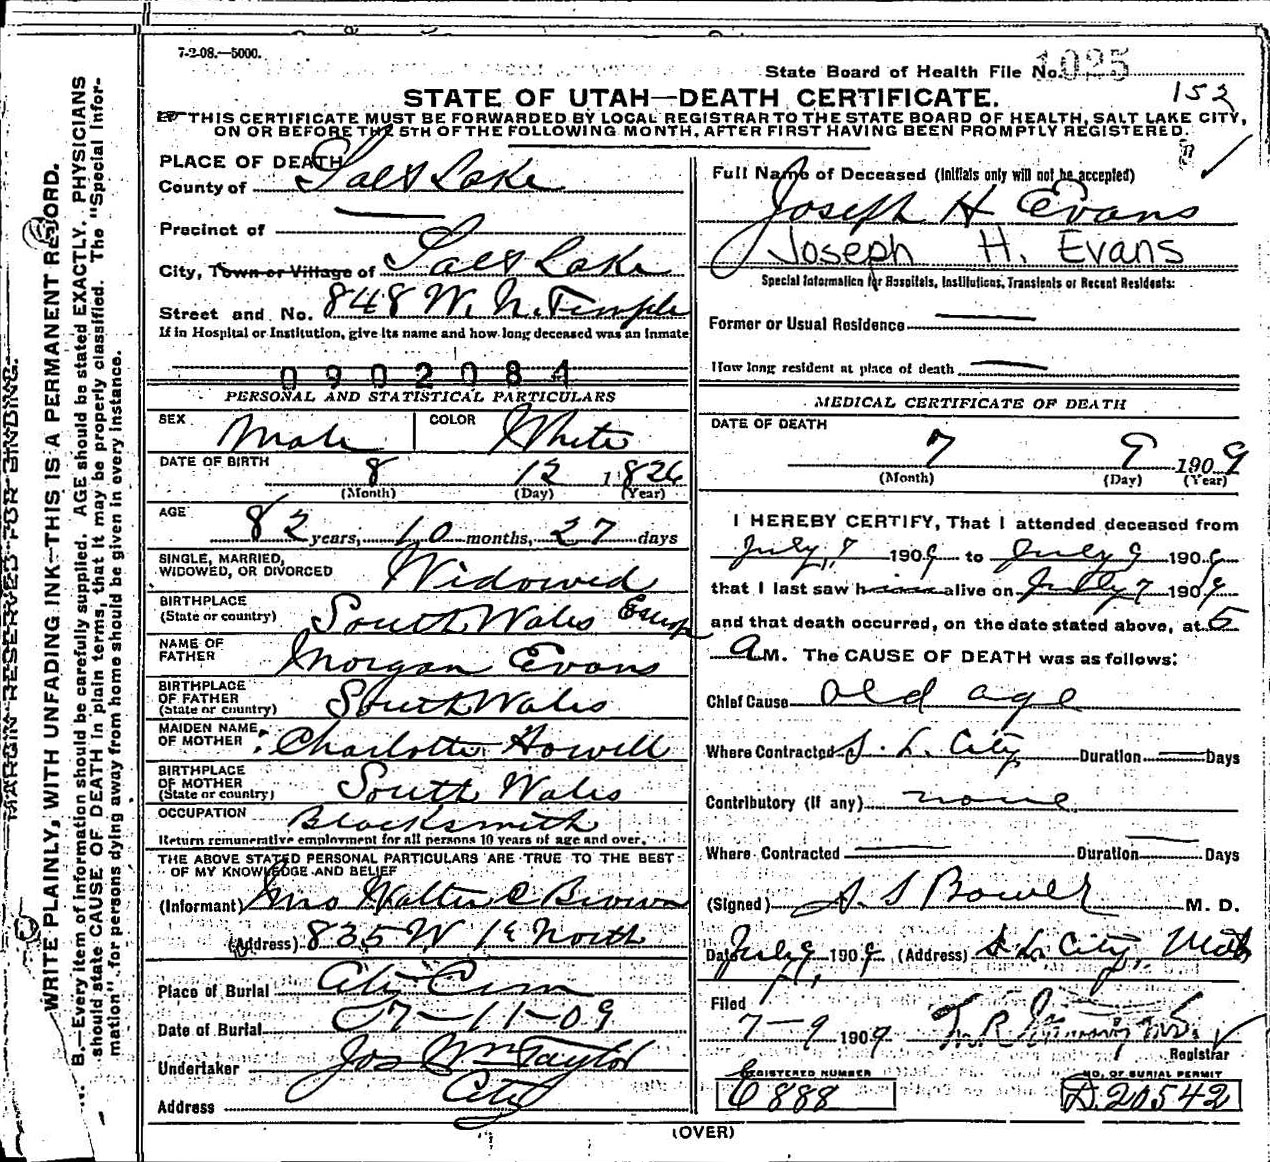 7-2-08.—5000.
State Board of Health File No. 1025
152
STATE OF UTAH—DEATH CERTIFICATE.
THIS CERTIFICATE MUST BE FORWARDED BY LOCAL REGISTRAR TO THE STATE BOARD OF HEALTH, SALT LAKE CITY,
ON OR BEFORE THE 5TH OF THE FOLLOWING MONTH, AFTER FIRST HAVING BEEN PROMPTLY REGISTERED.
PLACE OF DEATH
County of Salt Lake
Precinct of
City, Town or Village of Salt Lake
Street and No. 848 W. N. Temple
If in Hospital or Institution, give its name and how long deceased was an inmate
0902084
PERSONAL AND STATISTICAL PARTICULARS
SEX Male COLOR White
DATE OF BIRTH 8 12 1826
(Month) (Day) (Year)
AGE 82 years, 10 months, 27 days
SINGLE, MARRIED,
WIDOWED, OR DIVORCED Widowed
BIRTHPLACE
(State or country) South Wales
NAME OF
FATHER Morgan Evans
BIRTHPLACE
OF FATHER
(State or country) South Wales
MAIDEN NAME
OF MOTHER Charlotte Howell
BIRTHPLACE
OF MOTHER
(State or country) South Wales
OCCUPATION Blacksmith
Return remunerative employment for all persons 10 years of age and over.
THE ABOVE STATED PERSONAL PARTICULARS ARE TRUE TO THE BEST
OF MY KNOWLEDGE AND BELIEF
(Informant) Mrs Walter C Brown
(Address) 835 W 1st North
Place of Burial City Cem
Date of Burial 7-11-09
Undertaker Jos Wm Taylor
Address City
Full Name of Deceased (Initials only will not be accepted)
Joseph H Evans
Joseph H. Evans
Special Information for Hospitals, Institutions, Transients or Recent Residents:
Former or Usual Residence
How long resident at place of death
MEDICAL CERTIFICATE OF DEATH
DATE OF DEATH
7 9 1909
(Month) (Day) (Year)
I HEREBY CERTIFY, That I attended deceased from
July, 7 1909 to July 9 1909
that I last saw him alive on July 7 1909
and that death occurred, on the date stated above, at 5
A M. The CAUSE OF DEATH was as follows:
Chief Cause old age
Where Contracted S. L. City Duration Days
Contributory (if any) none
Where Contracted Duration Days
(Signed) S. S Bower M. D.
Date July 9, 1909 (Address) S. L. City, Utah
Filed
7-9 1909
Registrar
REGISTERED NUMBER NO. OF BURIAL PERMIT
C 888 D. 20542
(OVER)
MARGIN RESERVED FOR BINDING.
WRITE PLAINLY, WITH UNFADING INK—THIS IS A PERMANENT RECORD.
B.—Every item of information should be carefully supplied. AGE should be stated EXACTLY. PHYSICIANS
should state CAUSE OF DEATH in plain terms, that it may be properly classified. The "Special Infor-
mation" for persons dying away from home should be given in every instance.